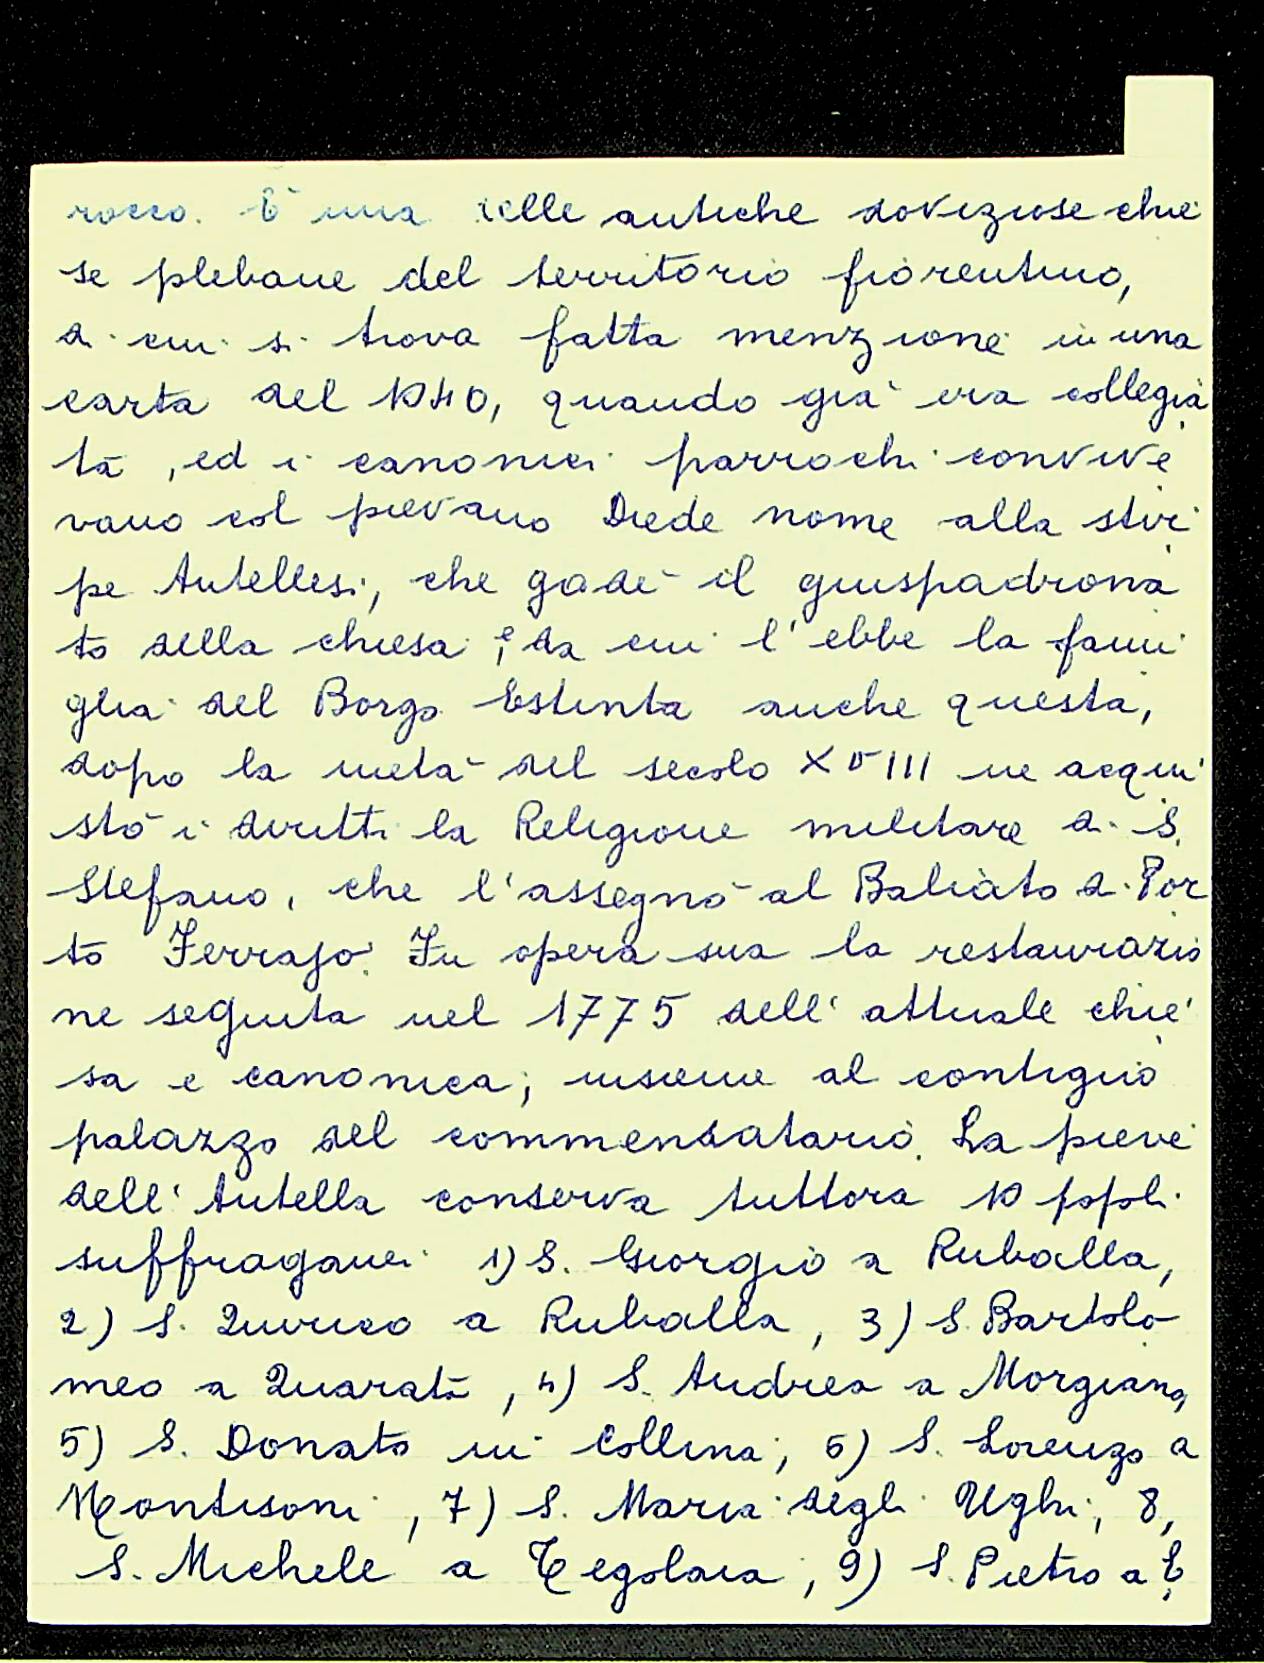 rocco. E' una delle antiche doviziose chie
se plebane del territorio fiorentino,
di cui si trova fatta menzione in una
carta del 1040, quando già era collegia
ta, ed i canonici parrochi convive
vano col pievano Diede nome alla stir
pe Antellesi, che godè il giuspadrona
to della chiesa; e da cui l'ebbe la fami
glia del Borgo. Estinta anche questa,
dopo la metà del secolo XVIII ne acqui
stò i diritti la Religione militare di S.
Stefano, che l'assegnò al Baliato di Por
to Ferrajo. Fu opera sua la restaurazio
ne seguita nel 1775 dell'attuale chie
sa e canonica, insieme al contiguo
palazzo del commendatario. La pieve
dell'Antella conserva tuttora 10 popoli
suffraganei 1) S. Giorgio a Ruballa,
2) S. Quirico a Ruballa, 3) S. Bartolo
meo a Quarata, 4) S. Andrea a Morgiano,
5) S. Donato in Collina, 6) S. Lorenzo a
Montisoni, 7) S. Maria degli Ughi, 8,
S. Michele a Tegolaia, 9) S. Pietro a E